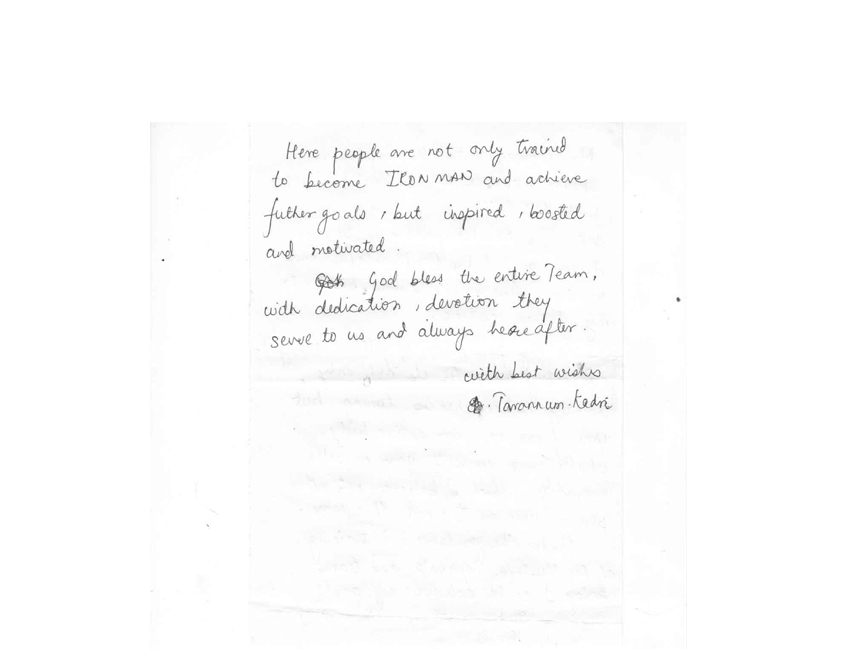 Here people are not only trained
to become IRON MAN and achieve
futher goals, but inspired, boosted
and motivated.
God bless the entire Team,
with dedication, devotion they
serve to us and always hereafter.
with best wishes
. Tarannum. Kedri